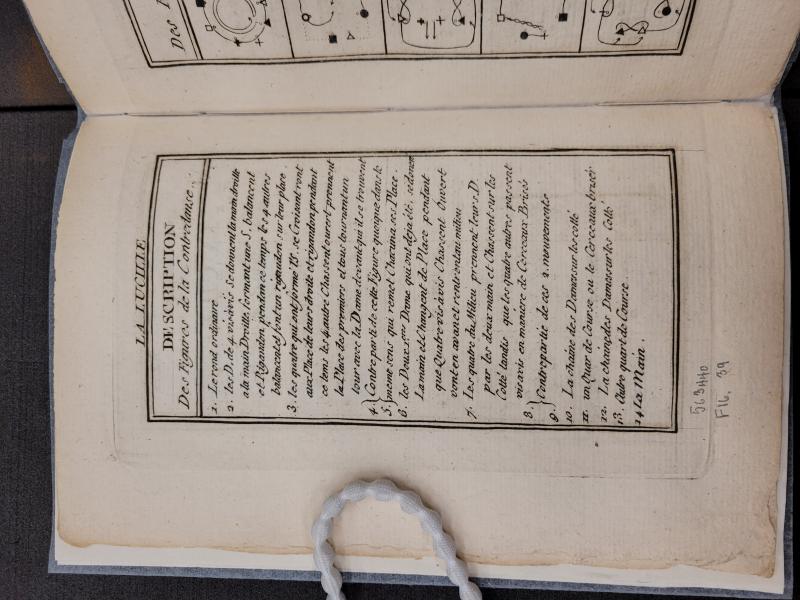 LA LUCILE
DESCRIPTION
Des Figures de la Contredanse.
1. Le rond ordinaire
2. les D. de 4. vis à vis se donnent la main droite
a la main Droitte, formant une S, balancent
et Rigaudon pendan ce temps les 4 autres
balancent et font un rigaudon sur leur place
3. les quatre qui ont formé l'S. se Croisant vont
aux Place de leurs droite et rigaudon pendant
ce tems les 4 autre Chassent ouvert et prennent
la Place des premiers et tous tournent un
tour avec la Dame devant qui il se trouvent
4. Contre parti de cette Figure quoique dans le
5. meme sens qui remet Chacun a ses Place.
6. les Deux Dame qui ont deja été, se donne
La main et Changent de Place pendant
que Quatre vis à vis Chassent Ouvert
vont en avan et rentre en tau milieu
7. Les quatre du Milieu prennent leurs D.
par les deux main et Chassent sur les
Cotté tandis que les quatre autres passent
vis avis en maniere de Cerceaux Brisés
8. Contrepartie de ces 2 mouvements
9.
10. La chaine des Dames sur les cotté
11. un Quar de Course ou le Cerceaux brisés
12. La chaine des Dames sur les Cotté
13. Outre quart de Course.
14 La Main.
563440
FIG. 39
Des